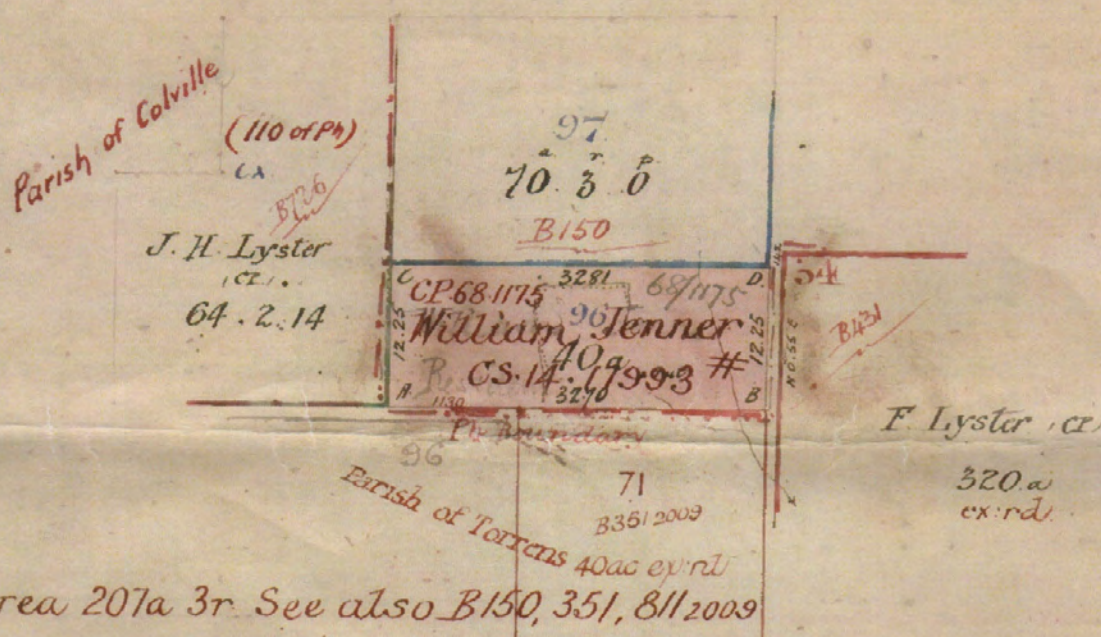 Parish of Colville
(110 of Ph)
cx
B726
J. H. Lyster
(cx).
64. 2. 14
97
a r p
70. 3 0
B150
C 3281 D.
CP.68.1175 68/1175
96
William Jenner
40a
CS. 14. 11993 #
12.25
12.25
A. 1130 3270 B
Ph Boundary
96
54
B431
N 0.55 E
F. Lyster (cx)
320.a
ex:rd.
Parish of Torrens
71
B351 2009
40ac ex:rd
rea 207a 3r See also B150, 351, 811 2009